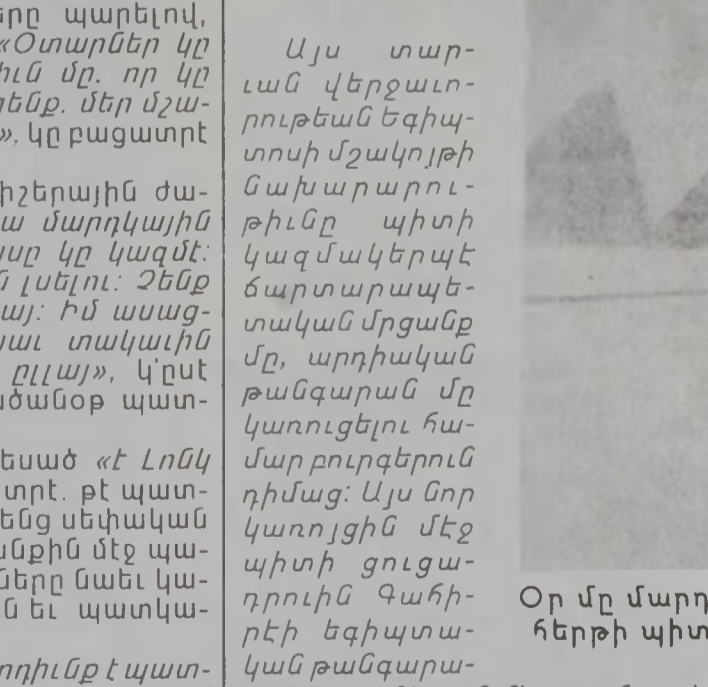 պարելով,
«Օտարներ կը
մը. որ կը
մեր մշա-
կը բացատրէ
ժա-
մարդկային
կը կազմէ:
լսելու: Չենք
Իմ ասաց-
տակաւին
ըլլայ», կ'ըսէ
պատ-
«է Լոնկ
թէ պատ-
սեփական
մէջ պա-
նաեւ կա-
եւ պատկա-
է պատ-
Այս տար-
ւան վերջաւո-
րութեան Եգիպ-
տոսի մշակոյթի
նախարարու-
թիւնը պիտի
կազմակերպէ
ճարտարապե-
տական մրցանք
մը, արդիական
թանգարան մը
կառուցելու հա-
մար բուրգերուն
դիմաց: Այս նոր
կառոյցին մէջ
պիտի ցուցա-
դրուին Գահի-
րէի եգիպտա-
կան թանգարա-
Օր մը մարդ
հերթի պիտ